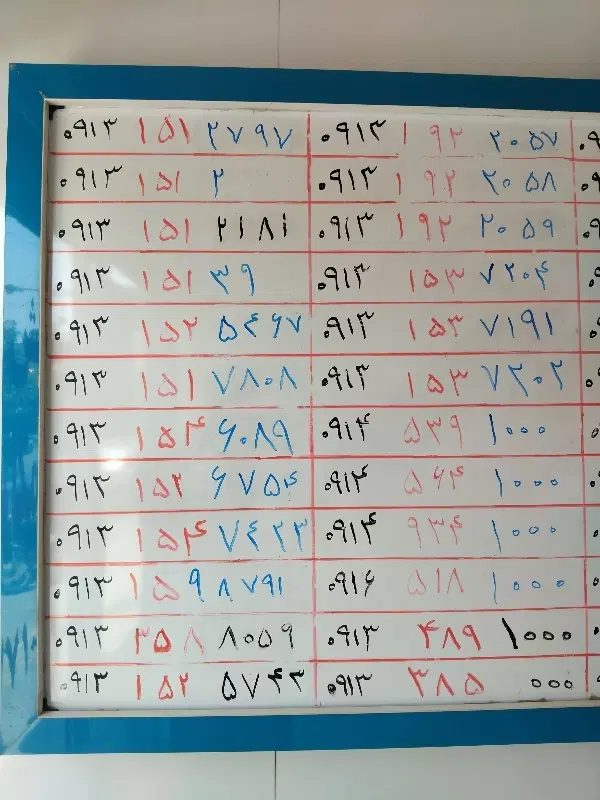 ۰۹۱۳ ۱۵۱ ۲۷۹۷
۰۹۱۳ ۱۵۱ ۲
۰۹۱۳ ۱۵۱ ۲۱۸۱
۰۹۱۳ ۱۵۱ ۳۹
۰۹۱۳ ۱۵۲ ۵۴۶۷
۰۹۱۳ ۱۵۱ ۷۸۰۸
۰۹۱۳ ۱۵۴ ۶۰۸۹
۰۹۱۳ ۱۵۲ ۶۷۵۴
۰۹۱۳ ۱۵۴ ۷۴۲۳
۰۹۱۳ ۱۵۹ ۸۷۹۱
۰۹۱۳ ۳۵۸ ۸۰۵۹
۰۹۱۳ ۱۵۲ ۵۷۴۳
۰۹۱۳ ۱۹۲ ۲۰۵۷
۰۹۱۳ ۱۹۲ ۲۰۵۸
۰۹۱۳ ۱۹۲ ۲۰۵۹
۰۹۱۳ ۱۵۳ ۷۲۰۴
۰۹۱۳ ۱۵۳ ۷۱۹۱
۰۹۱۳ ۱۵۳ ۷۲۰۲
۰۹۱۴ ۵۳۹ ۱۰۰۰
۰۹۱۴ ۵۶۴ ۱۰۰۰
۰۹۱۴ ۹۳۴ ۱۰۰۰
۰۹۱۶ ۵۱۸ ۱۰۰۰
۰۹۱۳ ۴۸۹ ۱۰۰۰
۰۹۱۳ ۳۸۵ ۰۰۰